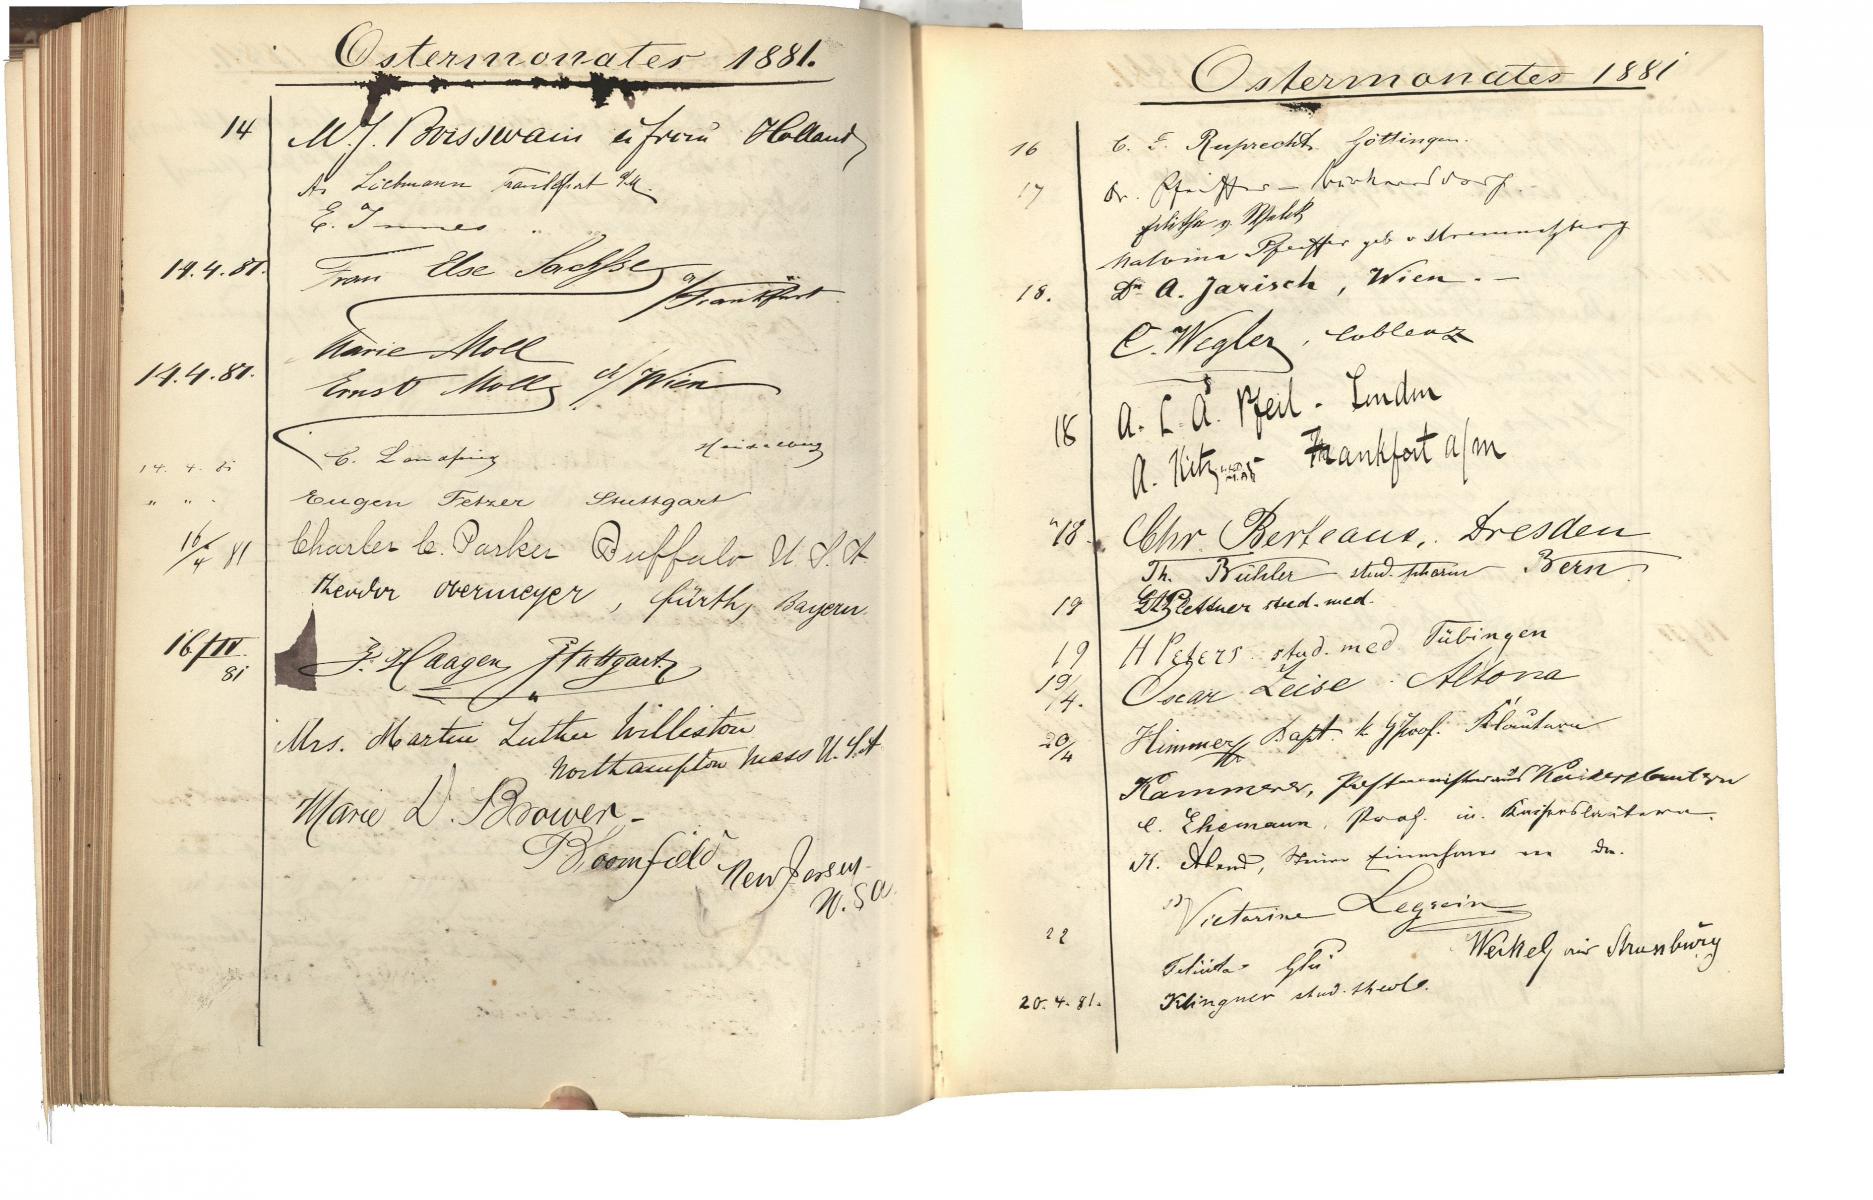 Ostermonates 1881.
14 M. J. Boissevain u frau Holland
A. Liebmann Frankfurt a/M.
E. Innes
14.4.81. Frau Else Sachsse a/Frankfurt
Marie Moll
14.4.81. Ernst Moll a/Wien
14. 4. 81 C. Heidelberg
" " . Eugen Fetzer Stuttgart
16/4 81 Charles C. Parker Buffalo U. S. A
Theodor Obermeyer, fürth, Bayern.
16/IV 81 F. Haagen, Stuttgart
Mrs. Martin Luther Williston
Northampton Mass U. S. A
Marie D. Brower -
Bloomfield New Jersey
U. S A.
Ostermonates 1881
16 C. F. Ruprecht. Göttingen.
17 Dr. Pfeiffer -
v.
Malvina Pfeiffer geb v
18. Dr. A. Jarisch, Wien. -
C. Wegler, Coblenz
18 A. L. A. Pfeil - London
A. Frankfort a/m
" 18. Chr. Berteaux, Dresden
Th. Bühler stud. pharm Bern
19 Plettner stud. med.
19 H Peters stud. med Tübingen
19/4. Oscar Zeise. Altona
20/4 Himmer, Kapt. k. Prof. Klautern
Kammerer, Postmeister aus Kaiserslautern
C. Ehemann, Prof. in Kaiserslautern.
K. Abend, da.
Victorine Legrein
22 Werkel aus Strassburg
20. 4. 81. Klingner stud. theol.